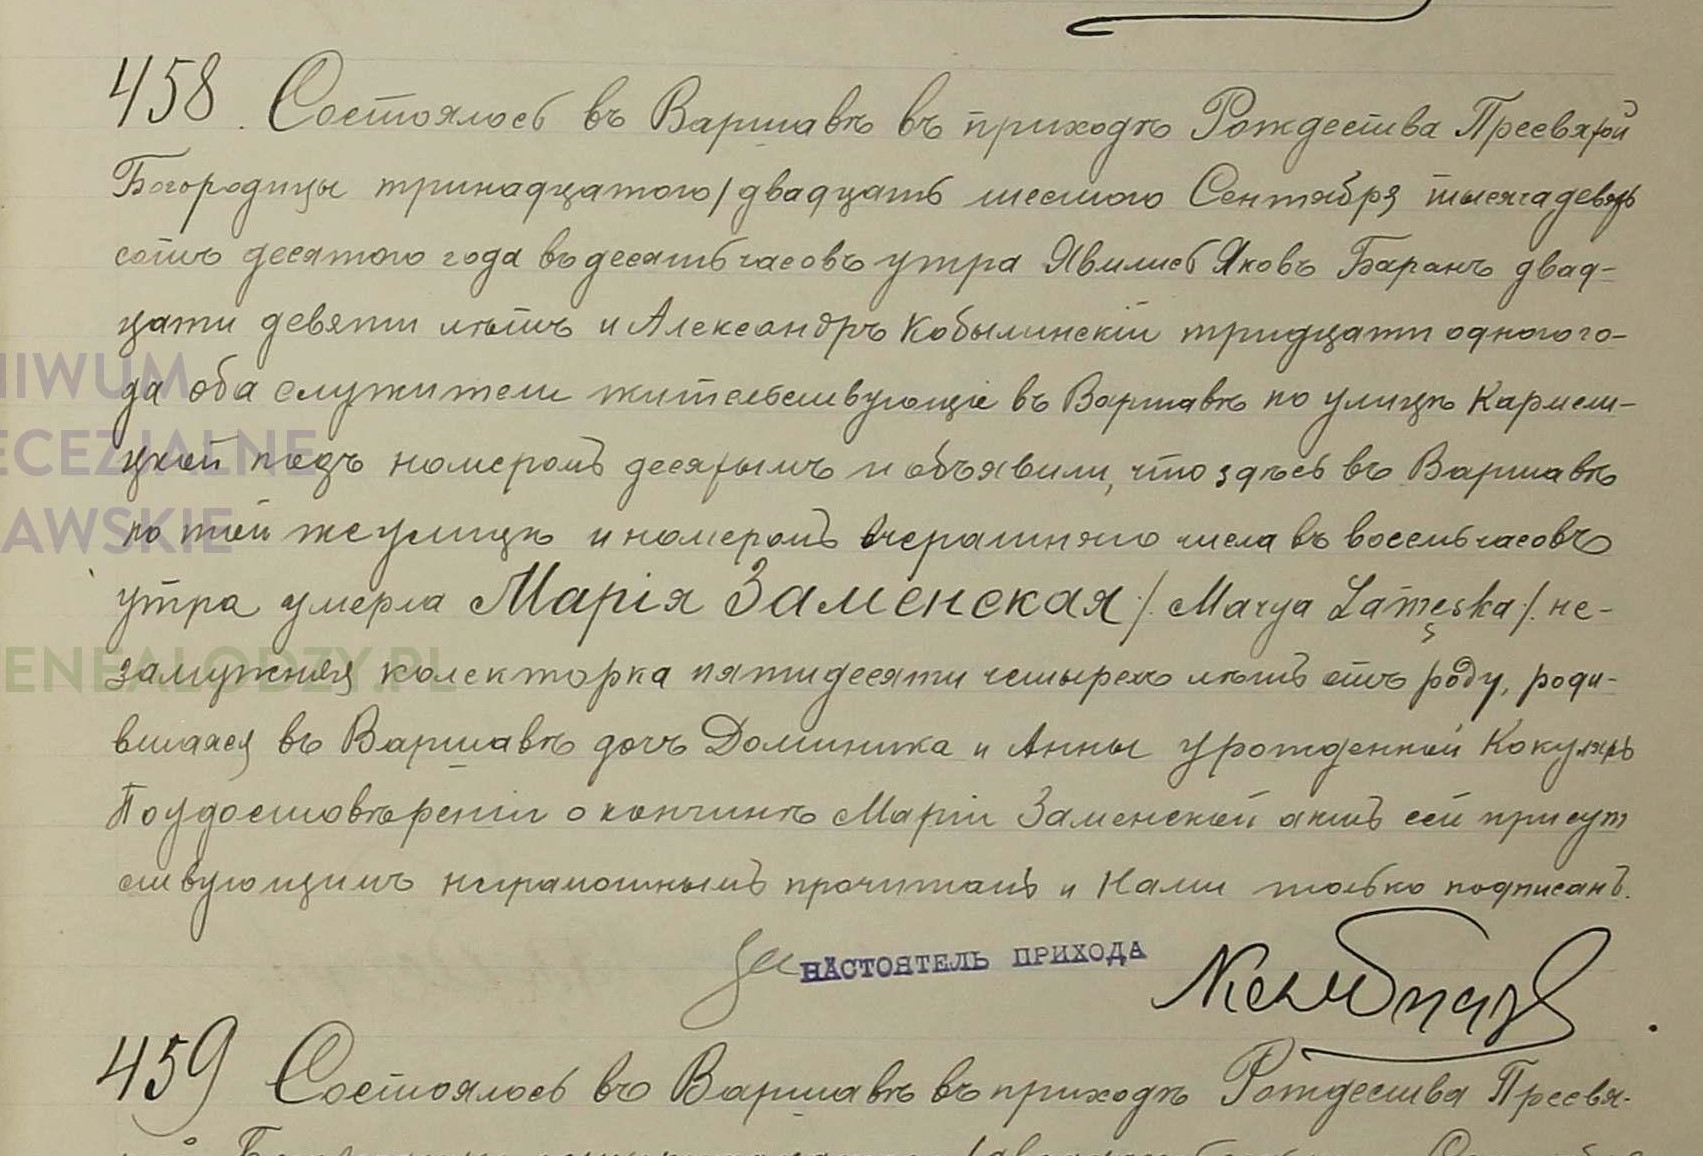 458. Состоялось въ Варшавѣ въ приходѣ Рождества Пресвятой
Богородицы тринадцатого / двадцать шестого Сентября тысяча девять
сотъ десятого года въ десять часовъ утра Явились Яковъ Баранъ двад-
цати девяти лѣтъ и Александръ Кобылинскій тридцати одного го-
да оба служители жительствующіе въ Варшавѣ по улицѣ Кармели-
цкой подъ номеромъ десятымъ и объявили, что здѣсь въ Варшавѣ
по той же улицѣ и номеромъ вчерашняго числа въ восемь часовъ
утра умерла Марія Заменская /. Marya Zamęska /. не-
замужняя колекторка пятидесяти четырехъ лѣтъ отъ роду, роди-
вшаяся въ Варшавѣ дочь Доминика и Анны урожденной Кокуляръ
По удостовѣреніи о кончинѣ Маріи Заменской актъ сей присут
ствующимъ неграмотнымъ прочитанъ и Нами только подписанъ.
За НАСТОЯТЕЛЬ ПРИХОДА
459 Состоялось въ Варшавѣ въ приходѣ Рождества Пресвя-
HIWUM
ECEZJALNE
AWSKIE
ENEALODZY.PL